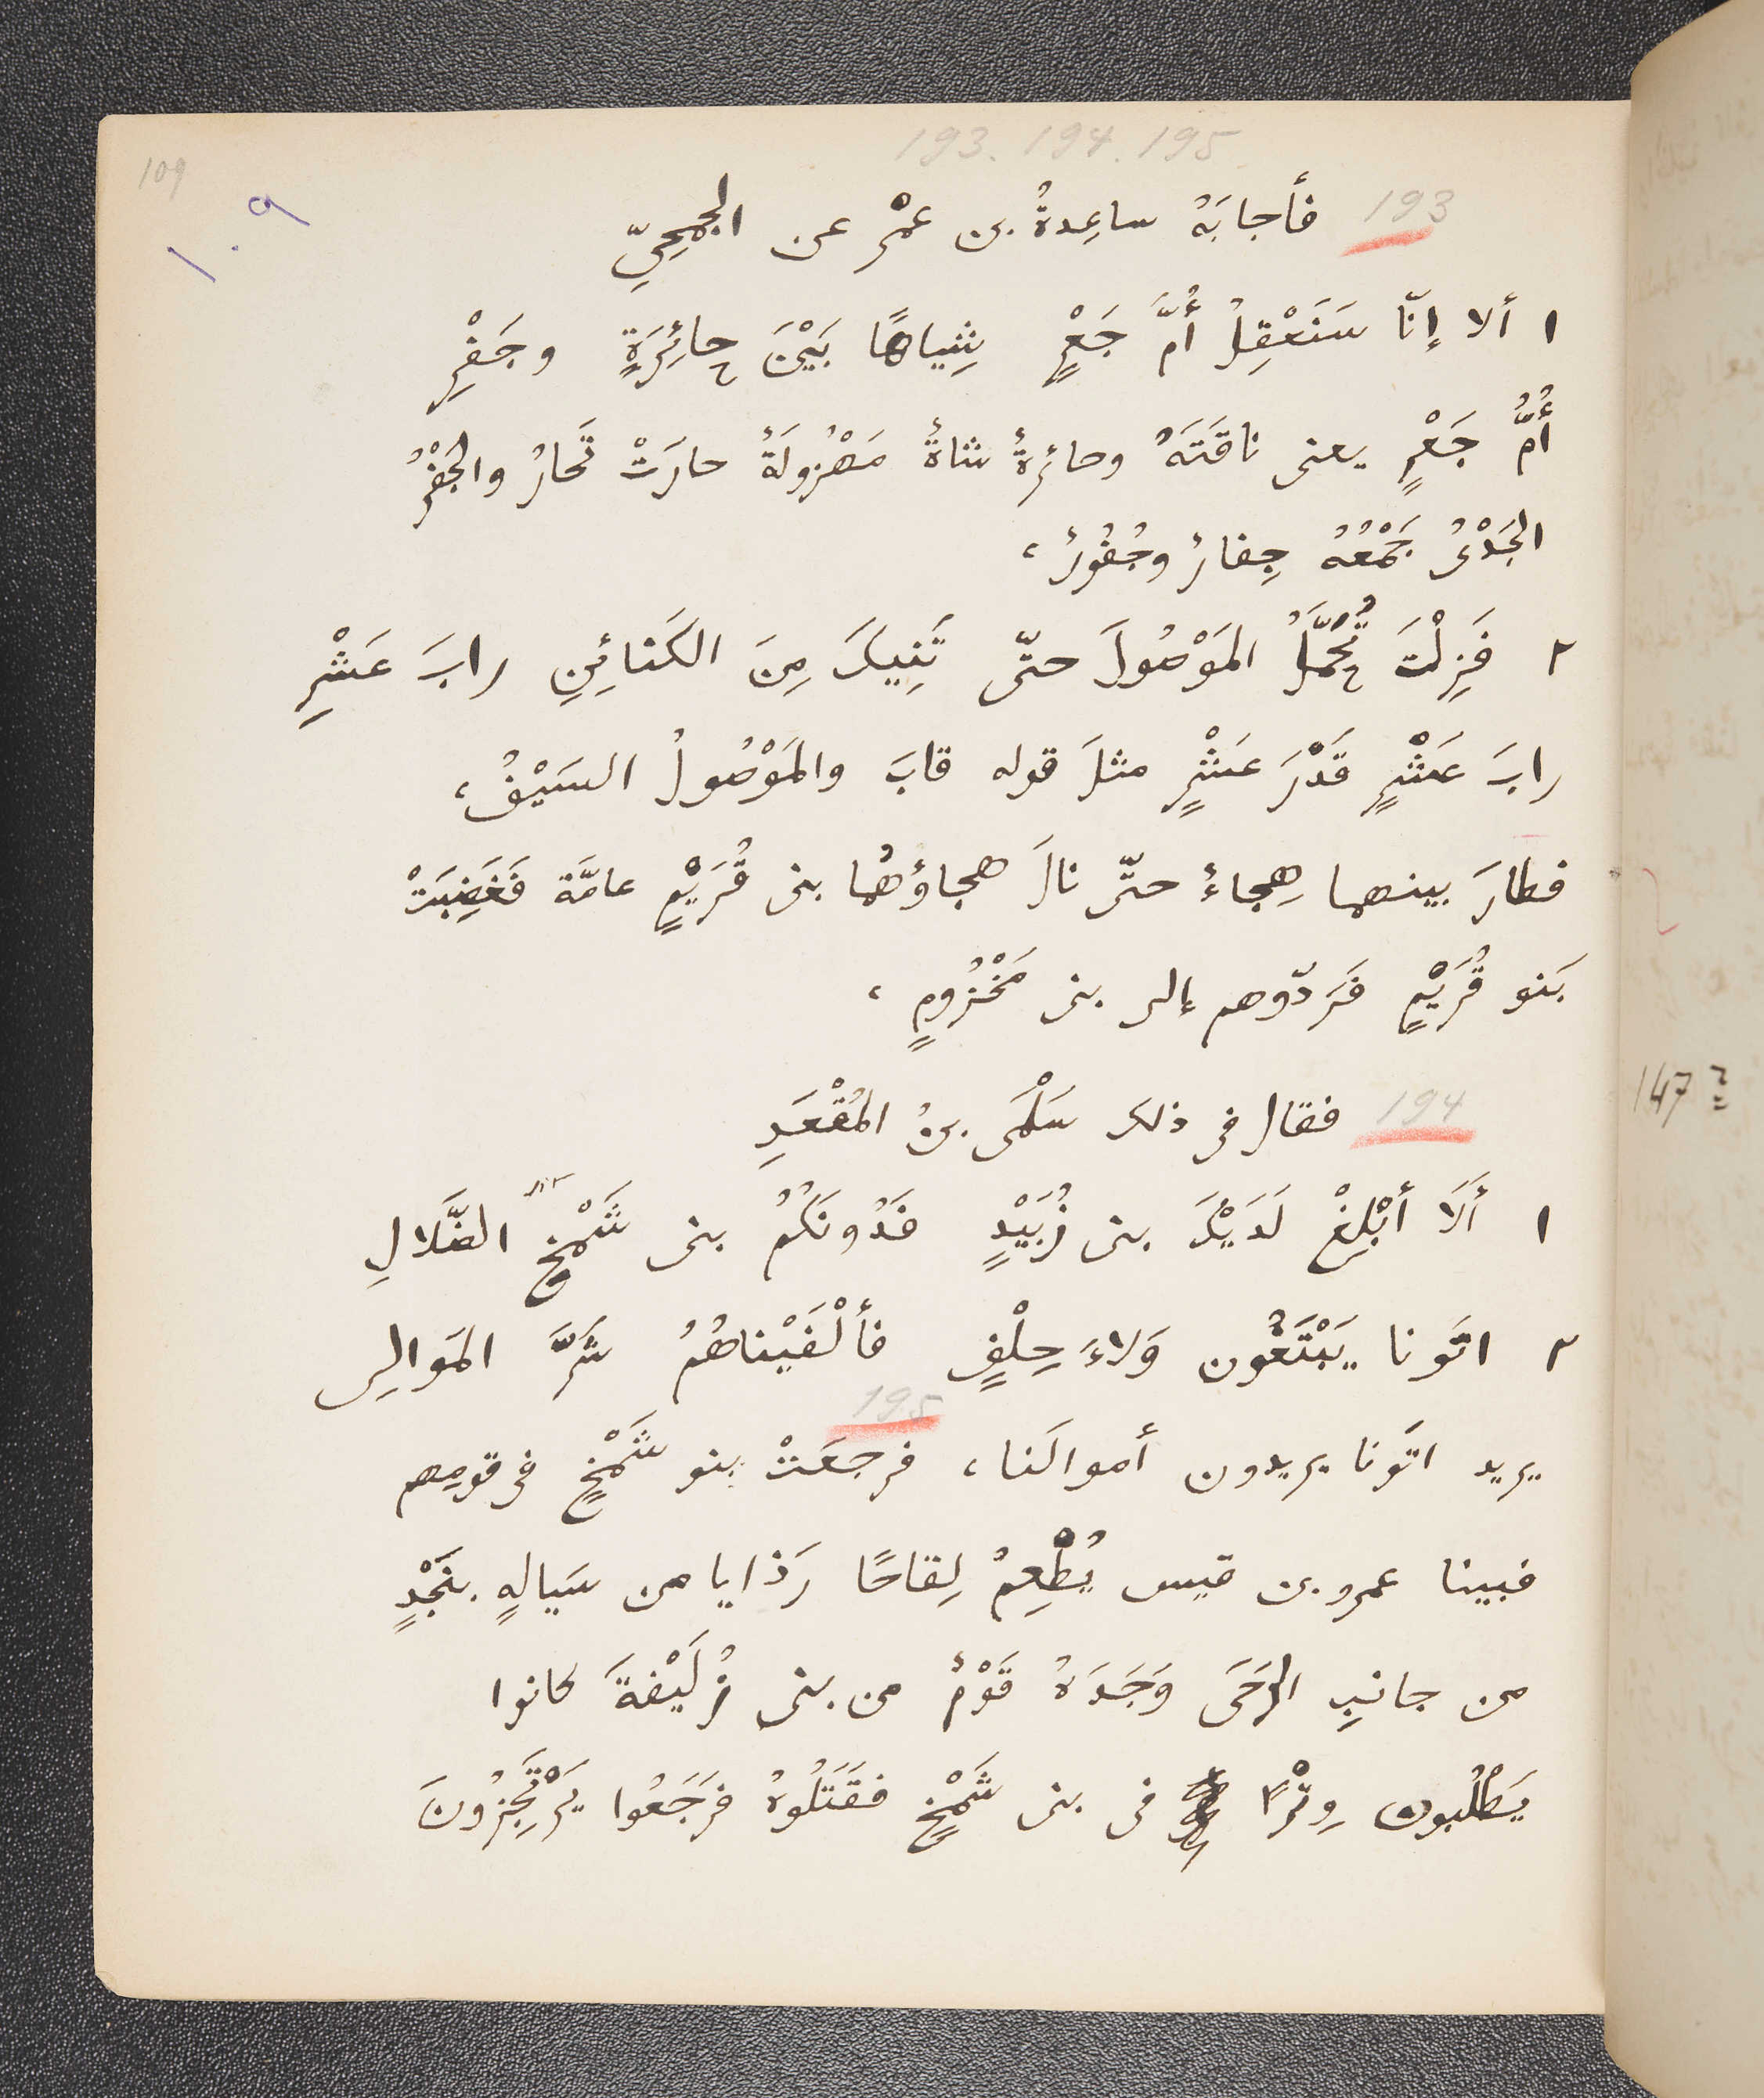 193. 194. 195
109
١٠٩
193 فأجابَهُ ساعِدةُ بن عمْرٍ عن الجُمَحِيّ
١ ألا إنّا سَنَعْقِلُ أُمَّ جَعْرٍ شِياهًا بَيْنَ حائِرَةٍ وجَفْرِ
أُمُّ جَعْرٍ يعنى ناقَتَهُ وحائرةٌ شاةٌ مَهْزولَةٌ حارَتْ تَحارُ والجَفْرُ
الجَدْىُ جَمْعُهُ جِفارٌ وجُفُورٌ،
٢ فَزِلْتَ تُحَمَّلُ المَوْصُولَ حتّى تَنِيكَ مِنَ الكَنائِنِ رابَ عَشْرِ
رابَ عَشْرٍ قَدْرَ عَشْرٍ مثلَ قوله قابَ والمَوْصُولُ السَيْفُ،
فطارَ بينهما هِجاءٌ حتّى نالَ هجاؤهُما بنى قُرَيْمٍ عامّة فَغَضِبَتْ
بَنو قُرَيْمٍ فَرَدّوهم إلى بنى مَخْزُومٍ،
147
194 فقال فى ذلك سَلْمَى بنُ المُقْعَدِ
١ أَلَا أبْلِغْ لَدَيْكَ بنى زُبَيْدٍ فَدُونَكُمُ بنى شَمْخِ الضَّلالِ
٢ اتَونا يَبْتَغُون وَلاءَ حِلْفٍ فألْفَيْناهُمُ شَرَّ المَوالِى
195
يريد اتَونا يريدون أموالَنا، فرجعَتْ بنو شَمْخٍ فى قومِهم
فبينا عمرو بن قيس يُطْعِمُ لِقاحًا رَذايا من سَيالةٍ بنَجْدٍ
من جانبِ الرَحَى وَجَدَهُ قَوْمٌ من بنى زُلَيْفةَ كانوا
يَطْلُبون وِتْرًا فى بنى شَمْخٍ فقَتَلُوهُ فرَجَعُوا يَرْتَجِزُونَ